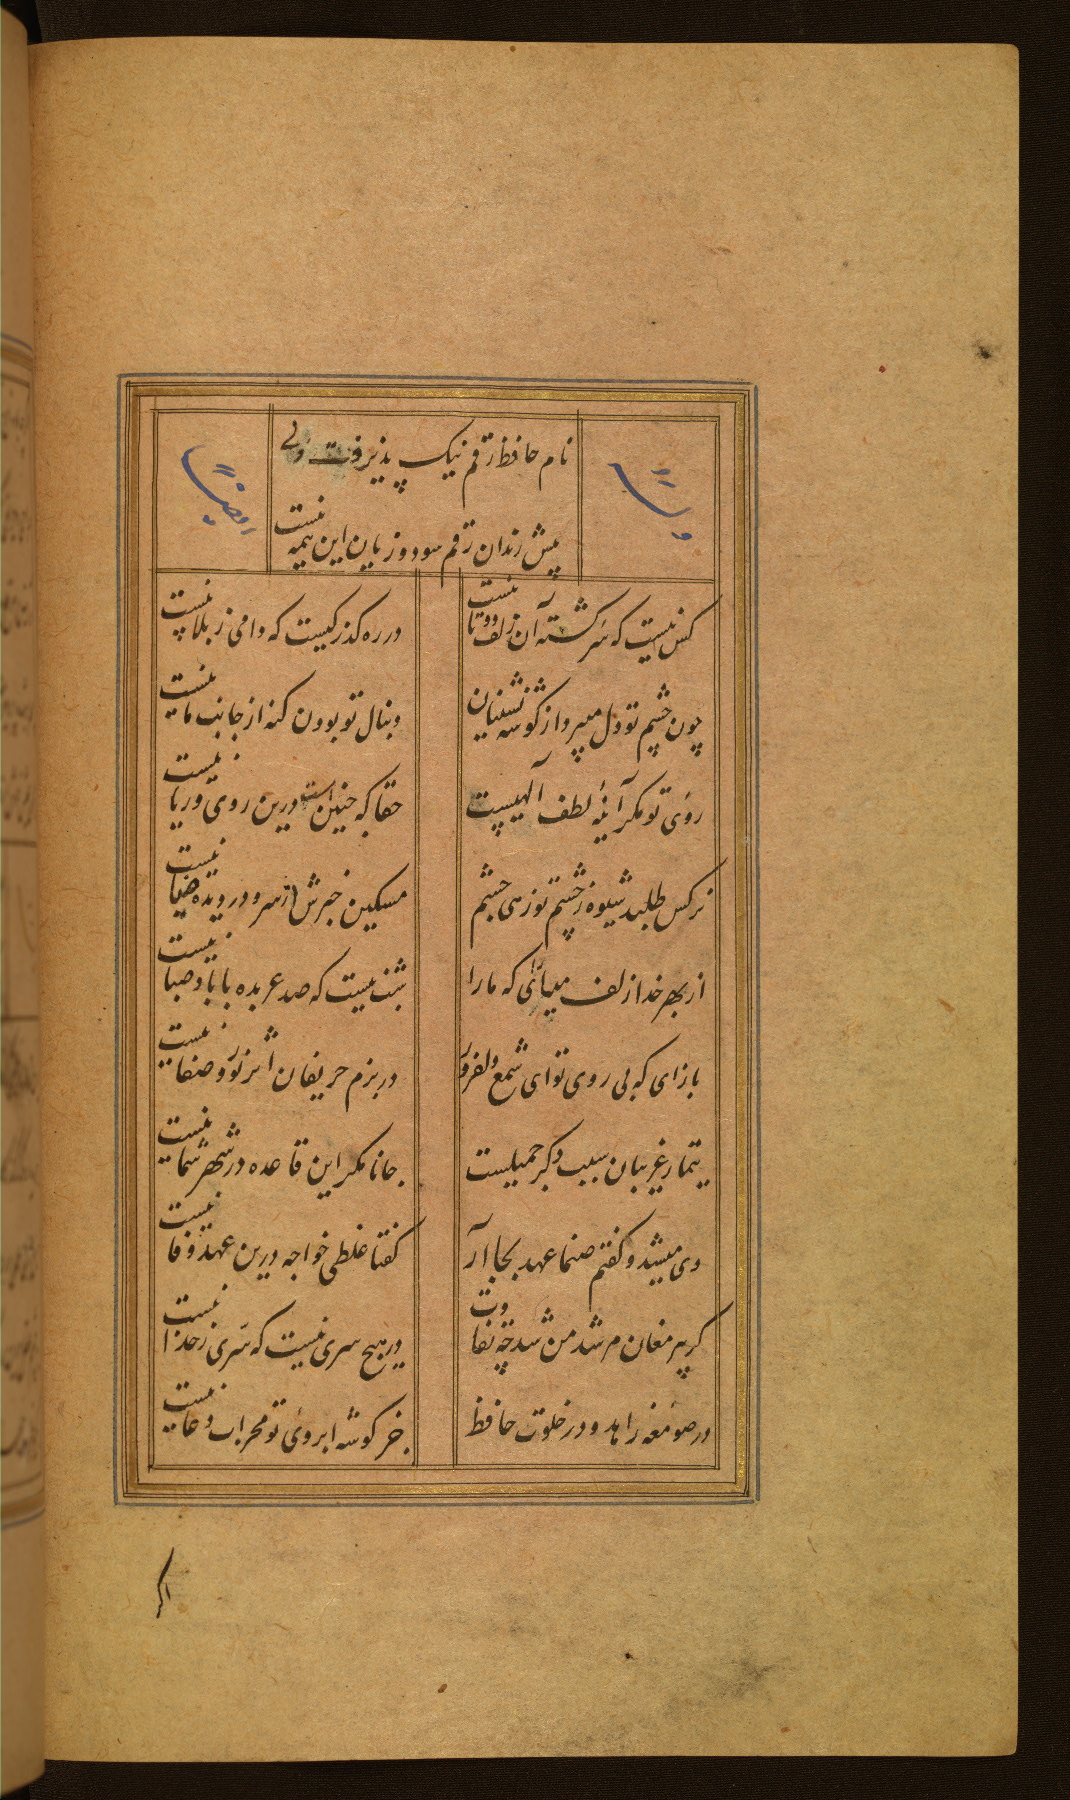 نام حافظ رقم نیک پذیرفت ولی
پیش رندان رقم سود و زیان این همه نیست
وله ایضاً
کس نیست که سرگشته آن زلف دوتا نیست
در ره کذر کیست که دامی ز بلا نیست
چون چشم تو دل میبرد از گوشه نشینان
دنبال تو بودن کنه از جانب ما نیست
روی تو مکر آئینه لطف آلهیست
حقا که چنین است و درین روی و ریا نیست
نرکس طلبد شیوه ز چشم تو زهی چشم
مسکین خبرش از سر و در دیده ضیا نیست
از بهر خدا زلف میارای که ما را
شب نیست که صد عربده با باد صبا نیست
بازای که بی روی تو ای شمع دلفروز
در بزم حریفان اثر نور و صفا نیست
تیمار غریبان سبب ذکر جمیلست
جانا مکر این قاعده در شهر شما نیست
دی میشد و کفتم صنما عهد بجا آر
کفتا غلطی خواجه درین عهد وفا نیست
کر پیر مغان مرشد من شد چه تفاوت
در هیچ سری نیست که سری ز خدا نیست
در صومعه زاهد و در خلوت حافظ
جز کوشه ابروی تو محراب دعا نیست
اکر